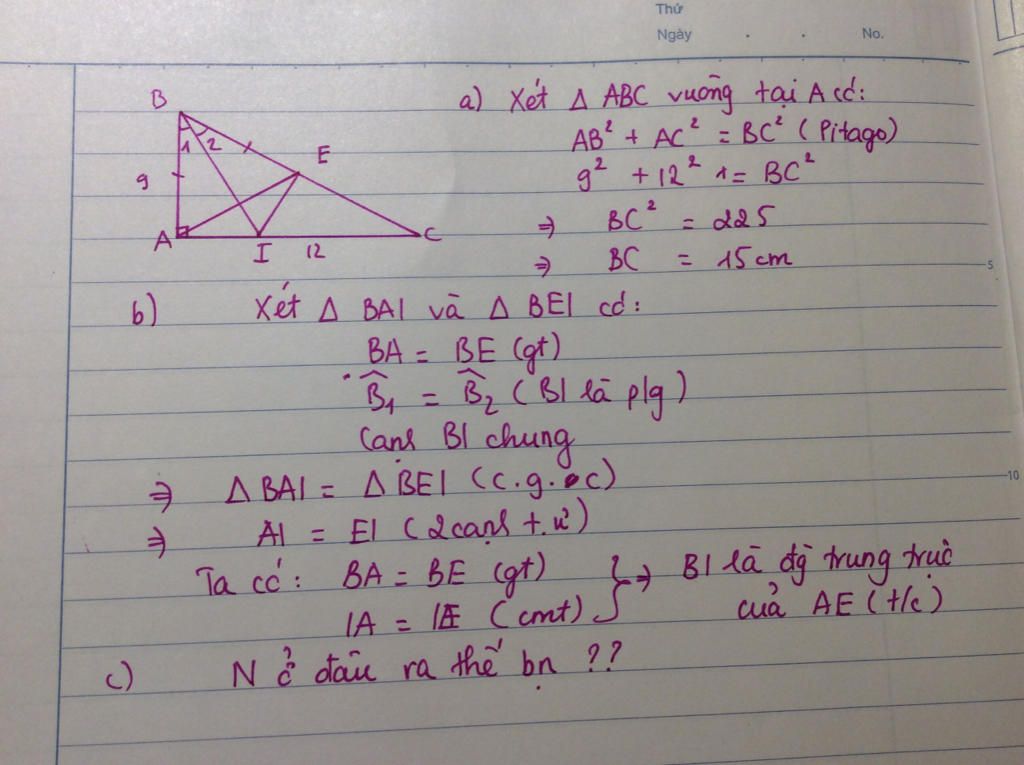 Thứ
Ngày . . No.
B
1 2
E
9
A
I
12
C
a) Xét Δ ABC vuông tại A có:
AB² + AC² = BC² (Pitago)
9² + 12² = BC²
⇒ BC² = 225
⇒ BC = 15 cm
5
b) Xét Δ BAI và Δ BEI có:
BA = BE (gt)
B̂₁ = B̂₂ (BI là p/g)
Cạnh BI chung
⇒ Δ BAI = Δ BEI (c.g.c)
10
⇒ AI = EI (2 cạnh t.ư)
Ta có: BA = BE (gt)
IA = IE (cmt) } ⇒ BI là đg trung trực
của AE (t/c)
c) N ở đâu ra thế bn ??